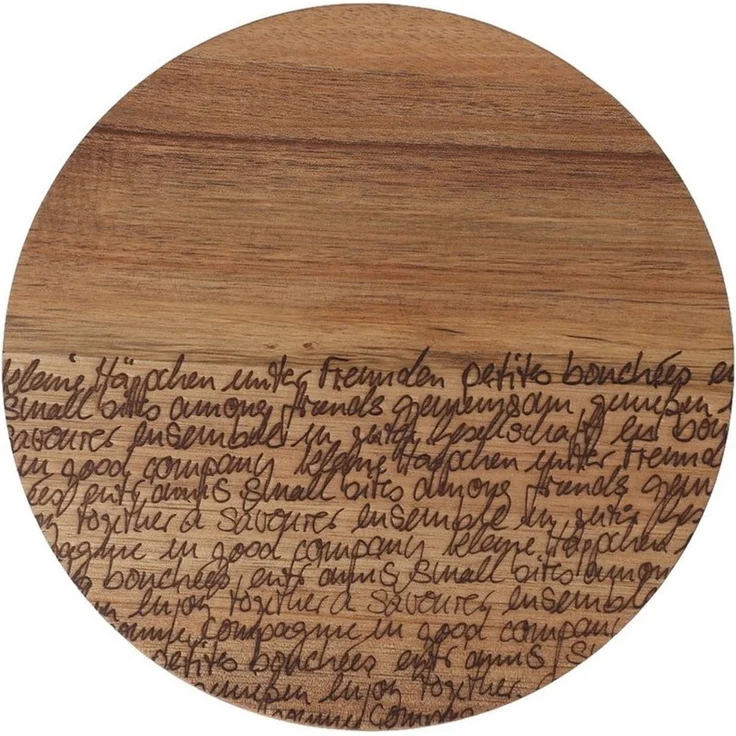 kleine Häppchen unter Freunden petites bouchées en
small bites among friends gemeinsam genießen
savourer ensemble in guter Gesellschaft en bon
in good company kleine Häppchen unter Freund
ées entre amis small bites among friends gem
together à savourer ensemble in guter Ges
pagnie in good company kleine Häppchen
bouchées entre amis small bites among
enjoy together à savourer ensemble
bonne compagnie in good company
petites bouchées entre amis s
genießen enjoy together
bonne compag